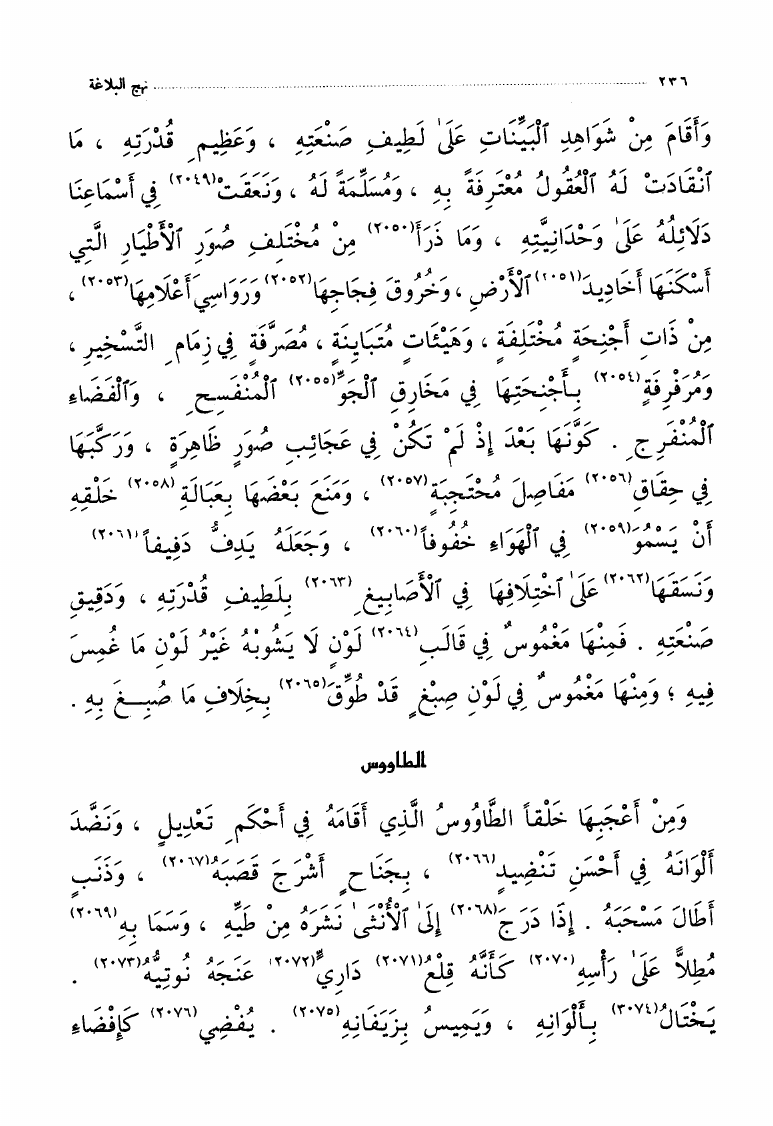 ٢٣٦ ........ نهج البلاغة
وَأَقَامَ مِنْ شَوَاهِدِ ٱلْبَيِّنَاتِ عَلَىٰ لَطِيفِ صَنْعَتِهِ ، وَعَظِيمِ قُدْرَتِهِ ، مَا
ٱنْقَادَتْ لَهُ ٱلْعُقُولُ مُعْتَرِفَةً بِهِ ، وَمُسَلِّمَةً لَهُ ، وَنَعَقَتْ(٢٠٤٩) فِي أَسْمَاعِنَا
دَلَائِلُهُ عَلَىٰ وَحْدَانِيَّتِهِ ، وَمَا ذَرَأَ(٢٠٥٠) مِنْ مُخْتَلِفِ صُوَرِ ٱلْأَطْيَارِ الَّتِي
أَسْكَنَهَا أَخَادِيدَ(٢٠٥١) ٱلْأَرْضِ ، وَخُرُوقَ فِجَاجِهَا(٢٠٥٢) وَرَوَاسِيَ أَعْلَامِهَا(٢٠٥٣) ،
مِنْ ذَاتِ أَجْنِحَةٍ مُخْتَلِفَةٍ ، وَهَيْئَاتٍ مُتَبَايِنَةٍ ، مُصَرَّفَةٍ فِي زِمَامِ التَّسْخِيرِ ،
وَمُرَفْرِفَةٍ(٢٠٥٤) بِأَجْنِحَتِهَا فِي مَخَارِقِ ٱلْجَوِّ(٢٠٥٥) ٱلْمُنْفَسِحِ ، وَٱلْفَضَاءِ
ٱلْمُنْفَرِجِ . كَوَّنَهَا بَعْدَ إِذْ لَمْ تَكُنْ فِي عَجَائِبِ صُوَرٍ ظَاهِرَةٍ ، وَرَكَّبَهَا
فِي حِقَاقِ(٢٠٥٦) مَفَاصِلَ مُحْتَجِبَةٍ(٢٠٥٧) ، وَمَنَعَ بَعْضَهَا بِعَبَالَةِ(٢٠٥٨) خَلْقِهِ
أَنْ يَسْمُوَ(٢٠٥٩) فِي ٱلْهَوَاءِ خُفُوفاً(٢٠٦٠) ، وَجَعَلَهُ يَدِفُّ دَفِيفاً(٢٠٦١)
وَنَسَقَهَا(٢٠٦٢) عَلَىٰ ٱخْتِلَافِهَا فِي ٱلْأَصَابِيغِ(٢٠٦٣) بِلَطِيفِ قُدْرَتِهِ ، وَدَقِيقِ
صَنْعَتِهِ . فَمِنْهَا مَغْمُوسٌ فِي قَالَبِ(٢٠٦٤) لَوْنٍ لَا يَشُوبُهُ غَيْرُ لَوْنِ مَا غُمِسَ
فِيهِ ؛ وَمِنْهَا مَغْمُوسٌ فِي لَوْنِ صِبْغٍ قَدْ طُوِّقَ(٢٠٦٥) بِخِلَافِ مَا صُبِغَ بِهِ .
الطاووس
وَمِنْ أَعْجَبِهَا خَلْقاً الطَّاوُوسُ الَّذِي أَقَامَهُ فِي أَحْكَمِ تَعْدِيلٍ ، وَنَضَّدَ
أَلْوَانَهُ فِي أَحْسَنِ تَنْضِيدٍ(٢٠٦٦) ، بِجَنَاحٍ أَشْرَجَ قَصَبَهُ(٢٠٦٧) ، وَذَنَبٍ
أَطَالَ مَسْحَبَهُ . إِذَا دَرَجَ(٢٠٦٨) إِلَىٰ ٱلْأُنْثَىٰ نَشَرَهُ مِنْ طَيِّهِ ، وَسَمَا بِهِ(٢٠٦٩)
مُطِلاًّ عَلَىٰ رَأْسِهِ(٢٠٧٠) كَأَنَّهُ قِلْعُ(٢٠٧١) دَارِيٍّ(٢٠٧٢) عَنَجَهُ نُوتِيُّهُ(٢٠٧٣) .
يَخْتَالُ(٣٠٧٤) بِأَلْوَانِهِ ، وَيَمِيسُ بِزَيَفَانِهِ(٢٠٧٥) . يُفْضِي(٢٠٧٦) كَإِفْضَاءِ